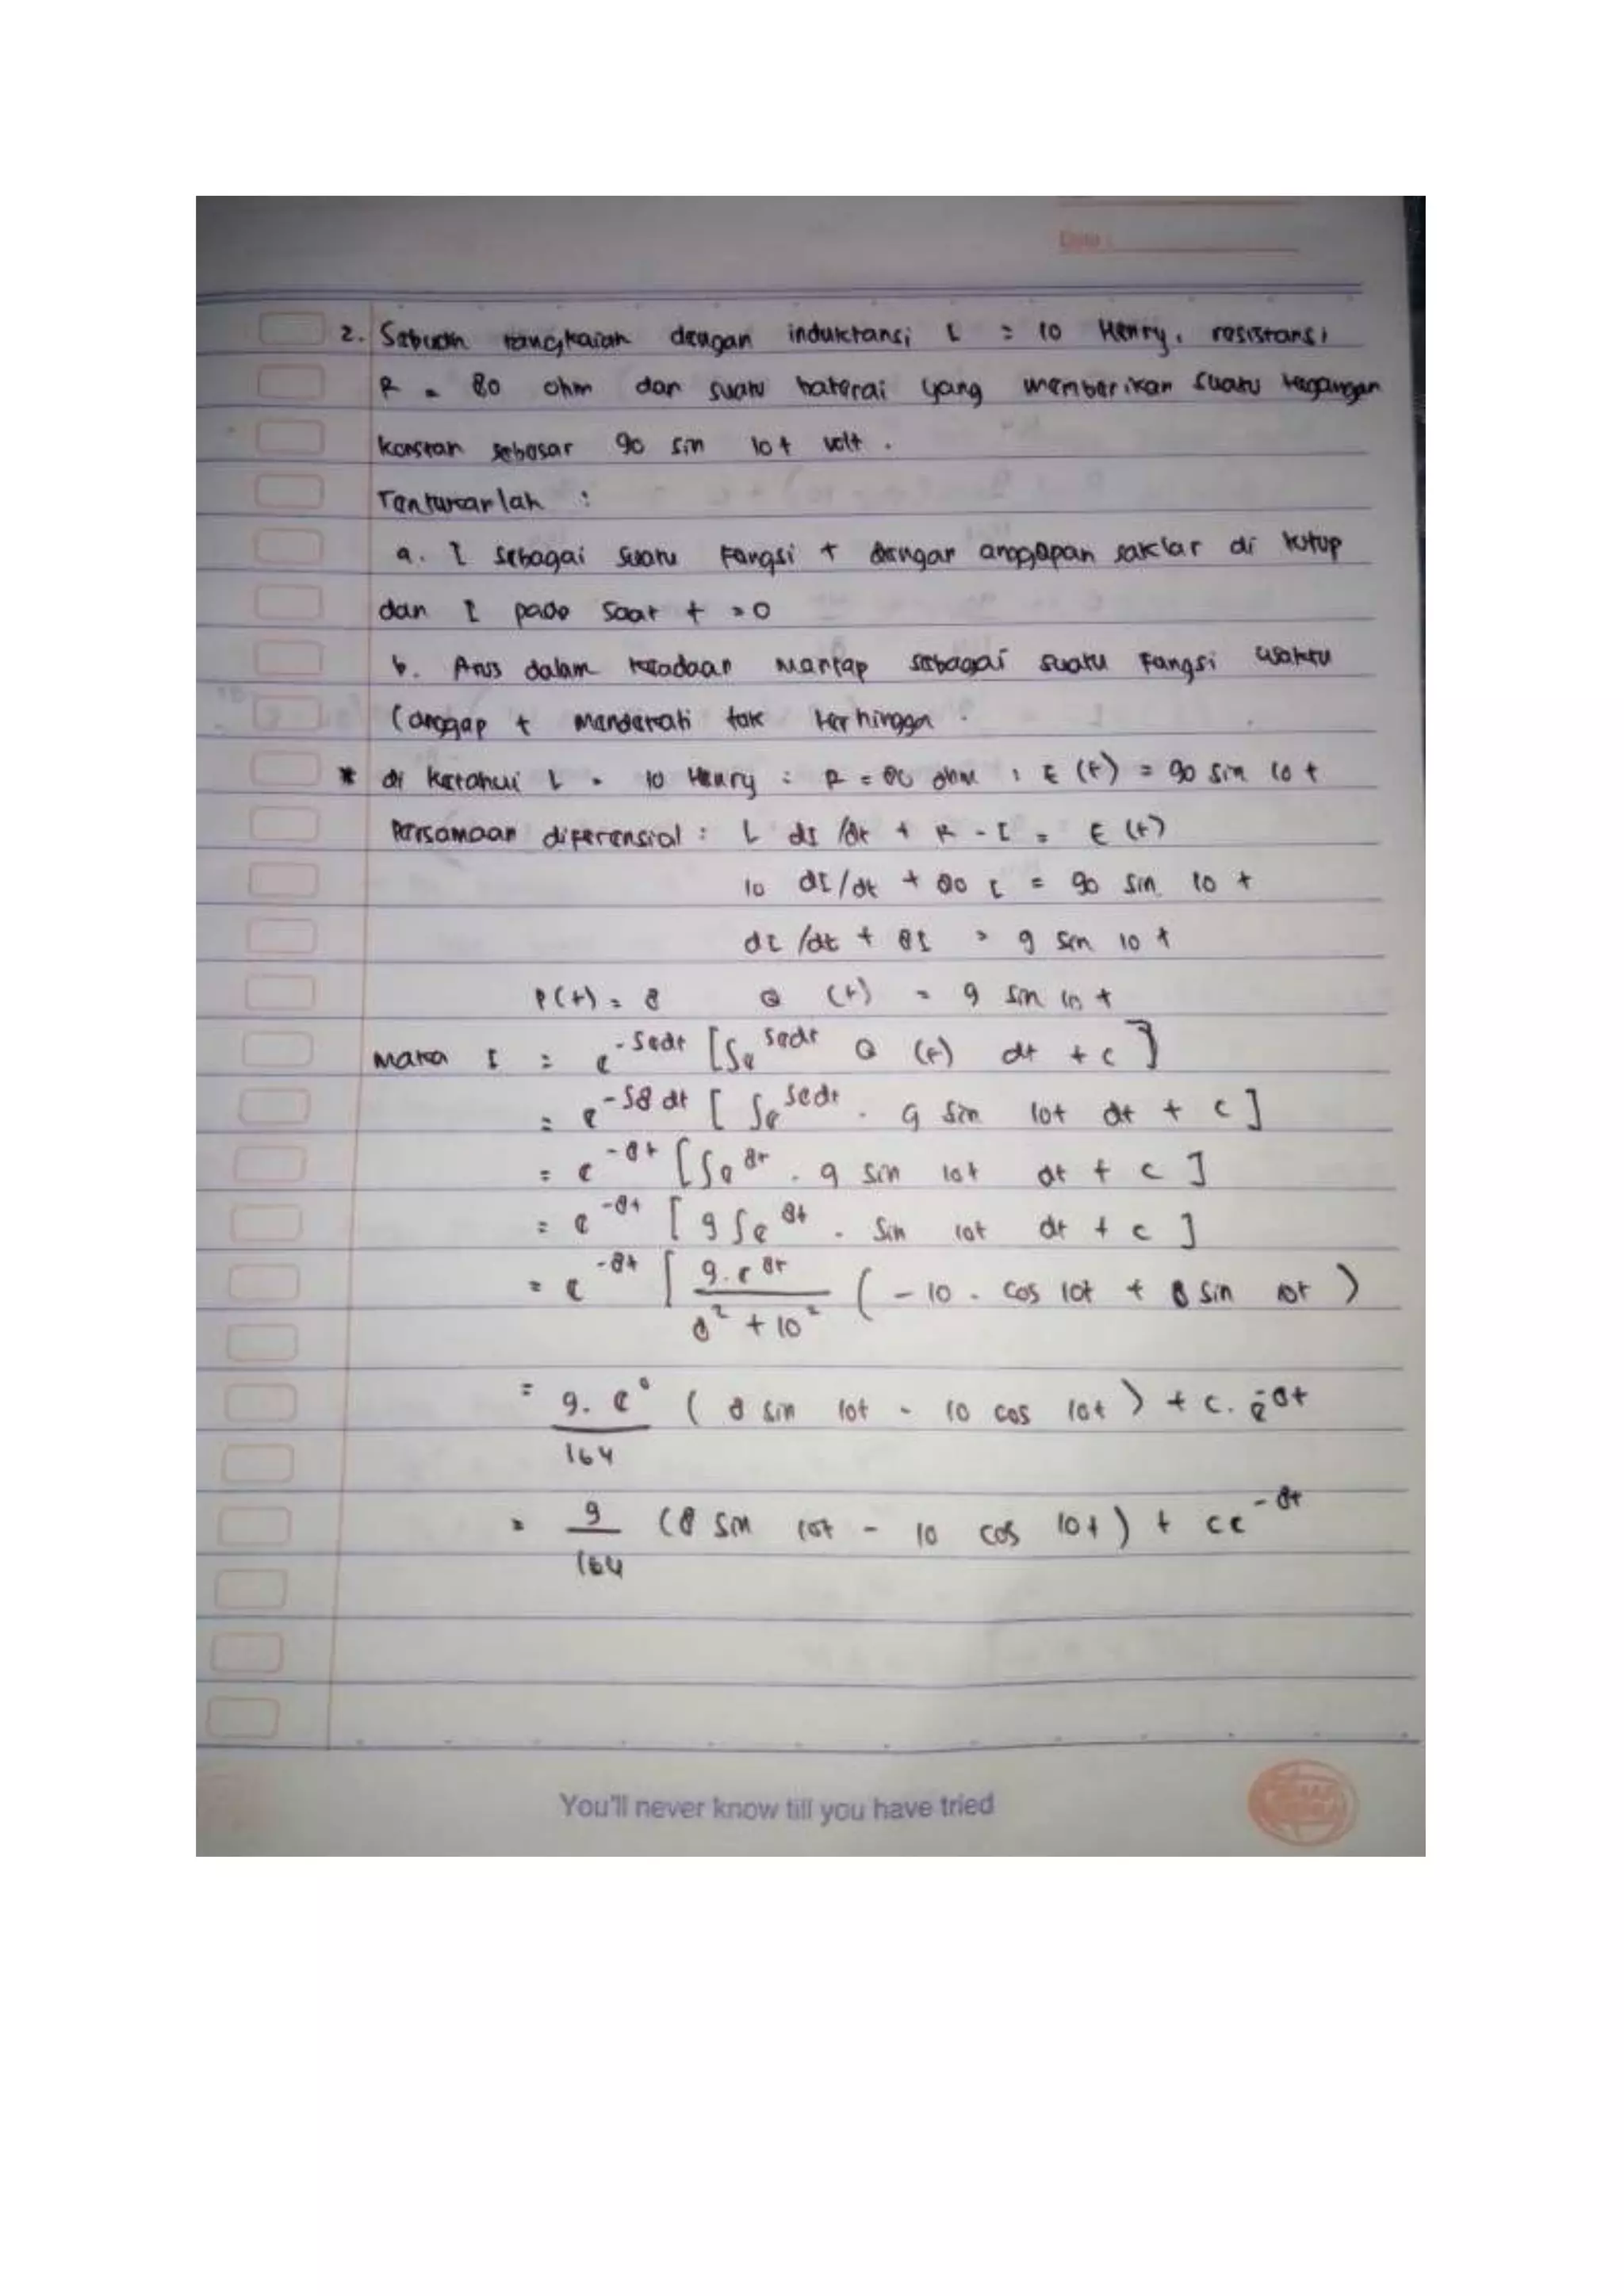 Date :
2. Sebuah rangkaian dengan induktansi L = 10 Henry, resistansi
R = 80 ohm dan suatu baterai yang memberikan suatu tegangan
konstan sebesar 90 sin 10t volt.
Tentukanlah :
a. I sebagai suatu fungsi t dengan anggapan saklar di tutup
dan I pada saat t = 0
b. Arus dalam keadaan mantap sebagai suatu fungsi waktu
(anggap t mendekati tak terhingga.
* di ketahui L = 10 Henry : R = 80 ohm : E (t) = 90 sin 10 t
Persamaan diferensial : L dI /dt + R - I = E (t)
10 dI/dt + 80 I = 90 sin 10 t
dI /dt + 8I = 9 sin 10 t
P(t) = 8 Q (t) = 9 sin 10 t
maka I = e^-∫8dt [∫e^∫8dt Q (t) dt + c ]
= e^-∫8 dt [ ∫e^∫8dt . 9 sin 10t dt + c ]
= e^-8t [∫e^8t . 9 sin 10t dt + c ]
= e^-8t [ 9 ∫e^8t . sin 10t dt + c ]
= e^-8t [ 9.e^8t / 8² + 10² ( - 10 . cos 10t + 8 sin 10t )
= 9. e⁰ / 164 ( 8 sin 10t - 10 cos 10t ) + c. e^-8t
= 9 / 164 (8 sin 10t - 10 cos 10t ) + ce^-8t
You'll never know till you have tried